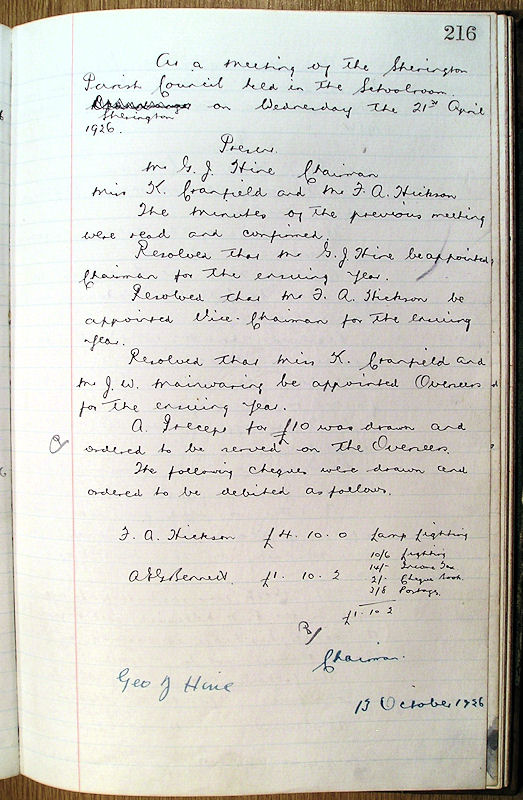 216
At a meeting of the Sherington
Parish Council held in the Schoolroom
Sherington on Wednesday the 21st April
1926.
Present
Mr G. J. Hine Chairman
Miss K. Cranfield and Mr F. A. Hickson
The minutes of the previous meeting
were read and confirmed.
Resolved that Mr G. J Hine be appointed
Chairman for the ensuing year.
Resolved that Mr F. A. Hickson be
appointed Vice-Chairman for the ensuing
year.
Resolved that Miss K. Cranfield and
Mr J. W. Mainwaring be appointed Overseers
for the ensuing year.
A. Precept for £10 was drawn and
ordered to be served on the Overseers.
The following cheques were drawn and
ordered to be debited as follows.
F. A. Hickson £4. 10. 0 Lamp Lighting
10/6 Lighting
A E G Bennett. £1. 10. 2 14/- Income Tax
2/- Cheque Book.
3/8 Postage.
£1. 10. 2
Chairman.
Geo J Hine
13 October 1926